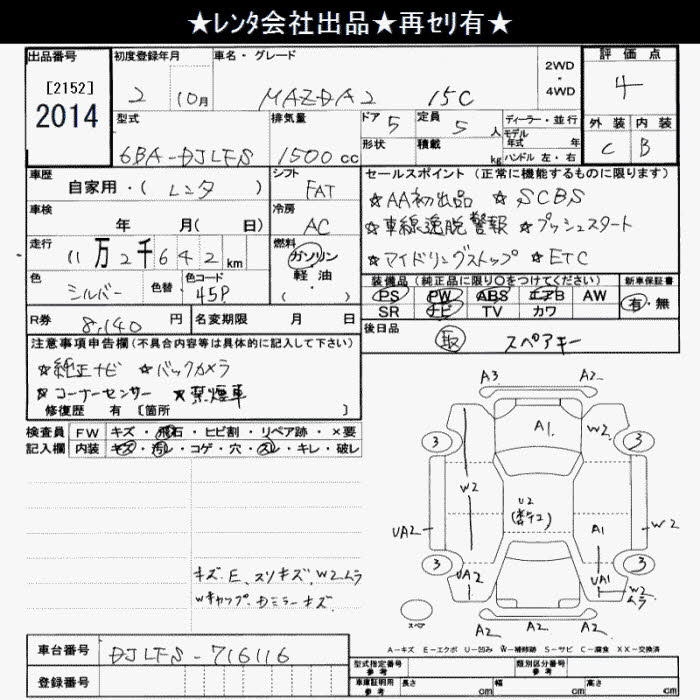 ★レンタ会社出品★再セリ有★
出品番号 初度登録年月 車名・グレード 2WD ・ 4WD 評価点
[2152] 2014 2 10月 MAZDA2 15C 4
型式 排気量 ドア 5 定員 5 人 ディーラー・並行 外装 内装
6BA-DJLFS 1500cc 形状 積載 kg モデル年式 年 ハンドル 左・右 C B
車歴 自家用・( レンタ ) シフト FAT セールスポイント (正常に機能するものに限ります)
車検 年 月( 日) 冷房 AC ☆AA初出品 ☆SCBS
☆車線逸脱警報 ☆プッシュスタート
走行 11万2千642km 燃料 ガソリン 軽油 ・( ) ☆アイドリングストップ ☆ETC
色 シルバー 色替 色コード 45P 装備品 (純正品に限り○をつけてください) 新車保証書
PS PW ABS エアB AW 有・無
SR ナビ TV カワ
R券 8,140 円 名変期限 月 日 後日品 取 スペアキー
注意事項申告欄(不具合内容等は具体的に記入して下さい)
☆純正ナビ ☆バックカメラ
☆コーナーセンサー ★禁煙車
修復歴 有 [箇所 ]
検査員 FW キズ・飛石・ヒビ割・リペア跡・×要
記入欄 内装 キズ・汚レ・コゲ・穴・スレ・キレ・破レ
キズ.E.スリキズ.W2ムラ
Wキャップ.Dミラーキズ
A3 A2
3 A1 W2 3
W2 U2
UA2 A1 W2
3 UA2 UA1 W2ムラ 3
スペア A2 A2 A2
A-キズ E-エクボ U-凹み W-補修跡 S-サビ C-腐食 XX-交換済
車台番号 DJLFS-716116
登録番号
型式指定番号 参考 類別区分番号 参考
車庫証明用 参考 長さ cm 幅 cm 高さ cm